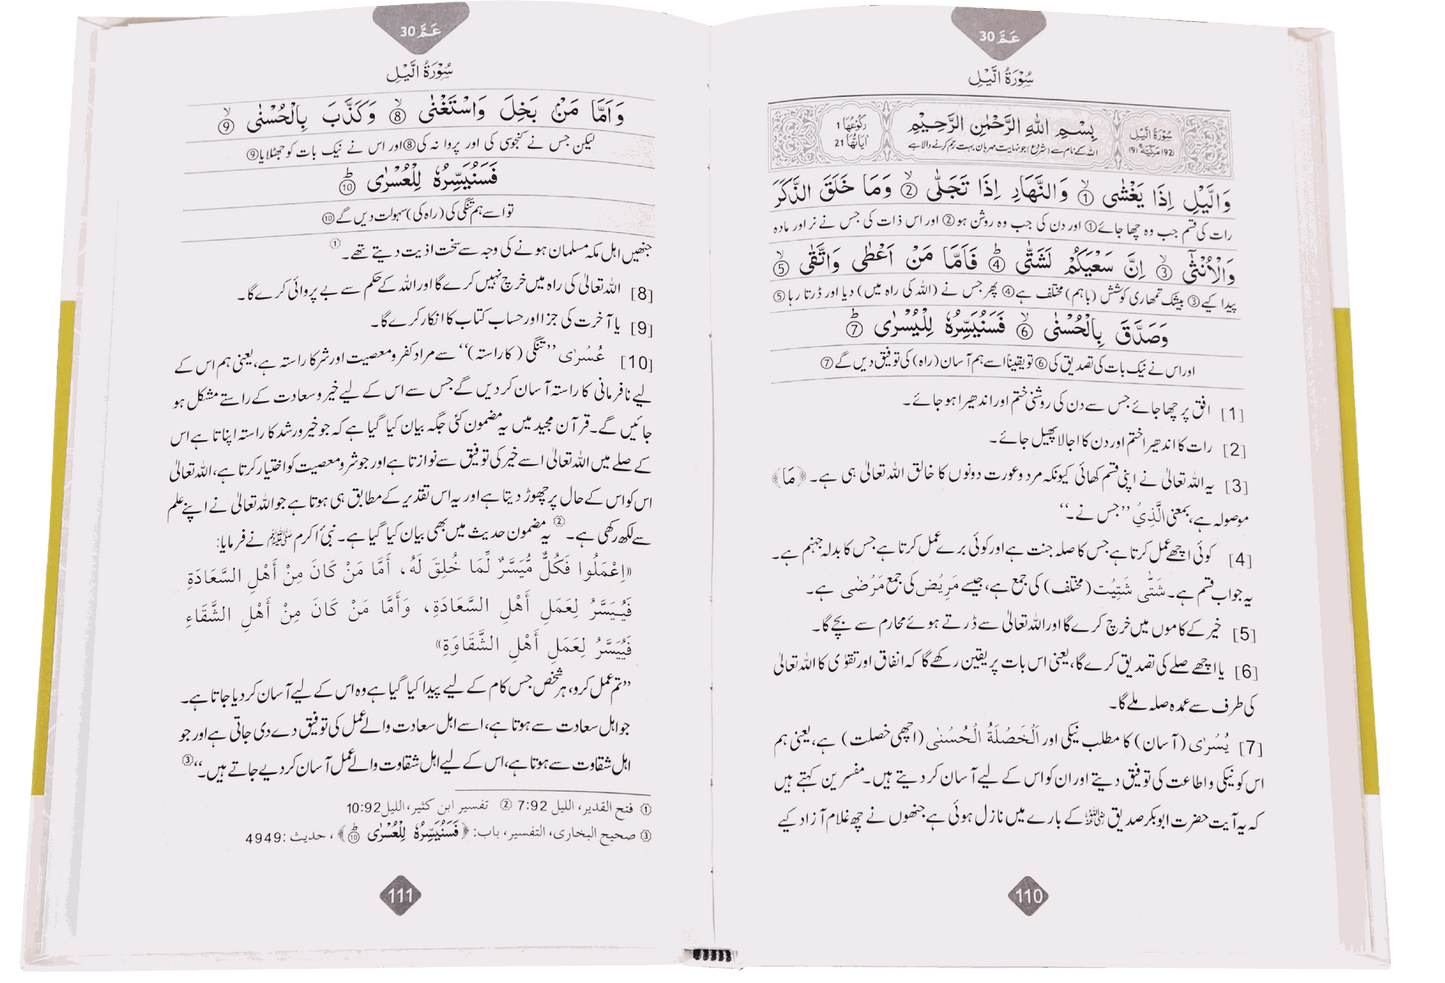 عَمَّ 30
سُوْرَةُ الَّيْلِ
سُوْرَةُ الَّيْلِ
(92) مَكِّيَّةٌ (9)
بِسْمِ اللهِ الرَّحْمٰنِ الرَّحِيْمِ
اللہ کے نام سے (شروع) جو نہایت مہربان بہت رحم کرنے والا ہے
رُكُوْعُهَا 1
اٰيَاتُهَا 21
وَالَّيْلِ اِذَا يَغْشٰى ① وَالنَّهَارِ اِذَا تَجَلّٰى ② وَمَا خَلَقَ الذَّكَرَ
رات کی قسم جب وہ چھا جائے ① اور دن کی جب وہ روشن ہو ② اور اس ذات کی جس نے نر اور مادہ
وَالْاُنْثٰٓى ③ اِنَّ سَعْيَكُمْ لَشَتّٰى ④ فَاَمَّا مَنْ اَعْطٰى وَاتَّقٰى ⑤
پیدا کیے ③ بیشک تمھاری کوشش (باہم) مختلف ہے ④ پھر جس نے (اللہ کی راہ میں) دیا اور ڈرتا رہا ⑤
وَصَدَّقَ بِالْحُسْنٰى ⑥ فَسَنُيَسِّرُهٗ لِلْيُسْرٰى ⑦
اور اس نے نیک بات کی تصدیق کی ⑥ تو یقیناً اسے ہم آسان (راہ) کی توفیق دیں گے ⑦
[1] افق پر چھا جائے جس سے دن کی روشنی ختم اور اندھیرا ہو جائے۔
[2] رات کا اندھیرا ختم اور دن کا اجالا پھیل جائے۔
[3] یہ اللہ تعالیٰ نے اپنی قسم کھائی کیونکہ مرد و عورت دونوں کا خالق اللہ تعالیٰ ہی ہے۔ ﴿مَا﴾
موصولہ ہے، بمعنی الَّذِيْ ’’جس نے۔‘‘
[4] کوئی اچھے عمل کرتا ہے جس کا صلہ جنت ہے اور کوئی برے عمل کرتا ہے جس کا بدلہ جہنم ہے۔
یہ جواب قسم ہے۔ شَتّٰى شَتِيْت (مختلف) کی جمع ہے، جیسے مَرِيْض کی جمع مَرْضٰى ہے۔
[5] خیر کے کاموں میں خرچ کرے گا اور اللہ تعالیٰ سے ڈرتے ہوئے محارم سے بچے گا۔
[6] یا اچھے صلے کی تصدیق کرے گا، یعنی اس بات پر یقین رکھے گا کہ انفاق اور تقوٰی کا اللہ تعالیٰ
کی طرف سے عمدہ صلہ ملے گا۔
[7] يُسْرٰى (آسان) کا مطلب نیکی اور اَلْخَصْلَةُ الْحُسْنٰى (اچھی خصلت) ہے، یعنی ہم
اس کو نیکی و اطاعت کی توفیق دیتے اور ان کو اس کے لیے آسان کر دیتے ہیں۔ مفسرین کہتے ہیں
کہ یہ آیت حضرت ابوبکر صدیق ؓ کے بارے میں نازل ہوئی ہے جنھوں نے چھ غلام آزاد کیے
110
عَمَّ 30
سُوْرَةُ الَّيْلِ
وَاَمَّا مَنْۢ بَخِلَ وَاسْتَغْنٰى ⑧ وَكَذَّبَ بِالْحُسْنٰى ⑨
لیکن جس نے کنجوسی کی اور پروا نہ کی ⑧ اور اس نے نیک بات کو جھٹلایا ⑨
فَسَنُيَسِّرُهٗ لِلْعُسْرٰى ⑩
تو اسے ہم تنگی کی (راہ کی) سہولت دیں گے ⑩
جنھیں اہل مکہ مسلمان ہونے کی وجہ سے سخت اذیت دیتے تھے۔ ①
[8] اللہ تعالیٰ کی راہ میں خرچ نہیں کرے گا اور اللہ کے حکم سے بے پروائی کرے گا۔
[9] یا آخرت کی جزا اور حساب کتاب کا انکار کرے گا۔
[10] عُسْرٰى ’’تنگی (کا راستہ)‘‘ سے مراد کفر و معصیت اور شر کا راستہ ہے، یعنی ہم اس کے
لیے نافرمانی کا راستہ آسان کر دیں گے جس سے اس کے لیے خیر و سعادت کے راستے مشکل ہو
جائیں گے۔ قرآن مجید میں یہ مضمون کئی جگہ بیان کیا گیا ہے کہ جو خیر و رشد کا راستہ اپناتا ہے اس
کے صلے میں اللہ تعالیٰ اسے خیر کی توفیق سے نوازتا ہے اور جو شر و معصیت کو اختیار کرتا ہے، اللہ تعالیٰ
اس کو اس کے حال پر چھوڑ دیتا ہے اور یہ اس تقدیر کے مطابق ہی ہوتا ہے جو اللہ تعالیٰ نے اپنے علم
سے لکھ رکھی ہے۔ ② یہ مضمون حدیث میں بھی بیان کیا گیا ہے۔ نبی اکرم ﷺ نے فرمایا:
«اِعْمَلُوا فَكُلٌّ مُّيَسَّرٌ لِّمَا خُلِقَ لَهُ، أَمَّا مَنْ كَانَ مِنْ أَهْلِ السَّعَادَةِ
فَيُيَسَّرُ لِعَمَلِ أَهْلِ السَّعَادَةِ، وَأَمَّا مَنْ كَانَ مِنْ أَهْلِ الشَّقَاءِ
فَيُيَسَّرُ لِعَمَلِ أَهْلِ الشَّقَاوَةِ»
’’تم عمل کرو، ہر شخص جس کام کے لیے پیدا کیا گیا ہے وہ اس کے لیے آسان کر دیا جاتا ہے۔
جو اہل سعادت سے ہوتا ہے، اسے اہل سعادت والے عمل کی توفیق دے دی جاتی ہے اور جو
اہل شقاوت سے ہوتا ہے، اس کے لیے اہل شقاوت والے عمل آسان کر دیے جاتے ہیں۔‘‘ ③
① فتح القدیر، اللیل 7:92 ② تفسیر ابن کثیر، اللیل 10:92
③ صحیح البخاری، التفسیر، باب: ﴿فَسَنُيَسِّرُهٗ لِلْعُسْرٰى ⑩﴾، حدیث: 4949
111